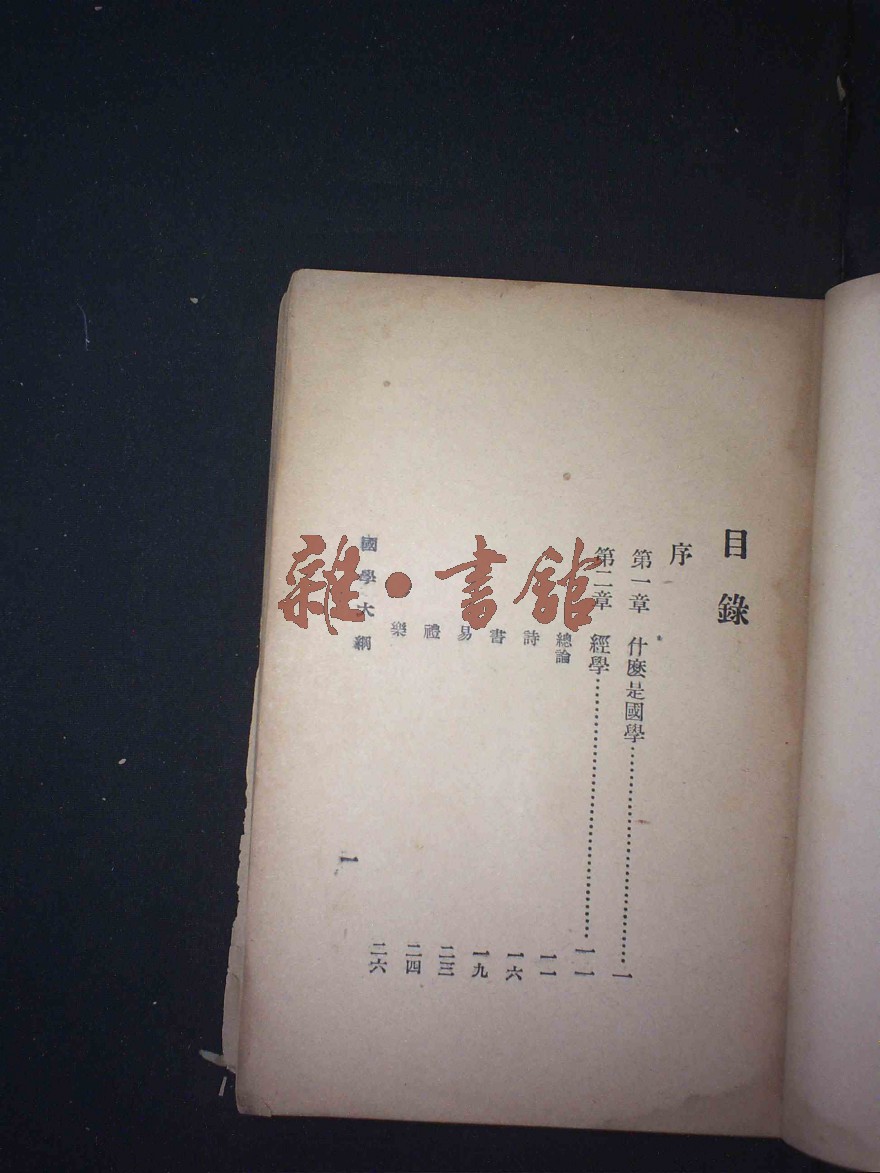 目錄
序
第一章 什麽是國學⋯⋯⋯⋯⋯⋯⋯⋯一
第二章 經學⋯⋯⋯⋯⋯⋯⋯⋯一一
總論 一一
詩 一六
書 一九
易 二三
禮 二四
樂 二六
國學大綱 一
雜·書館